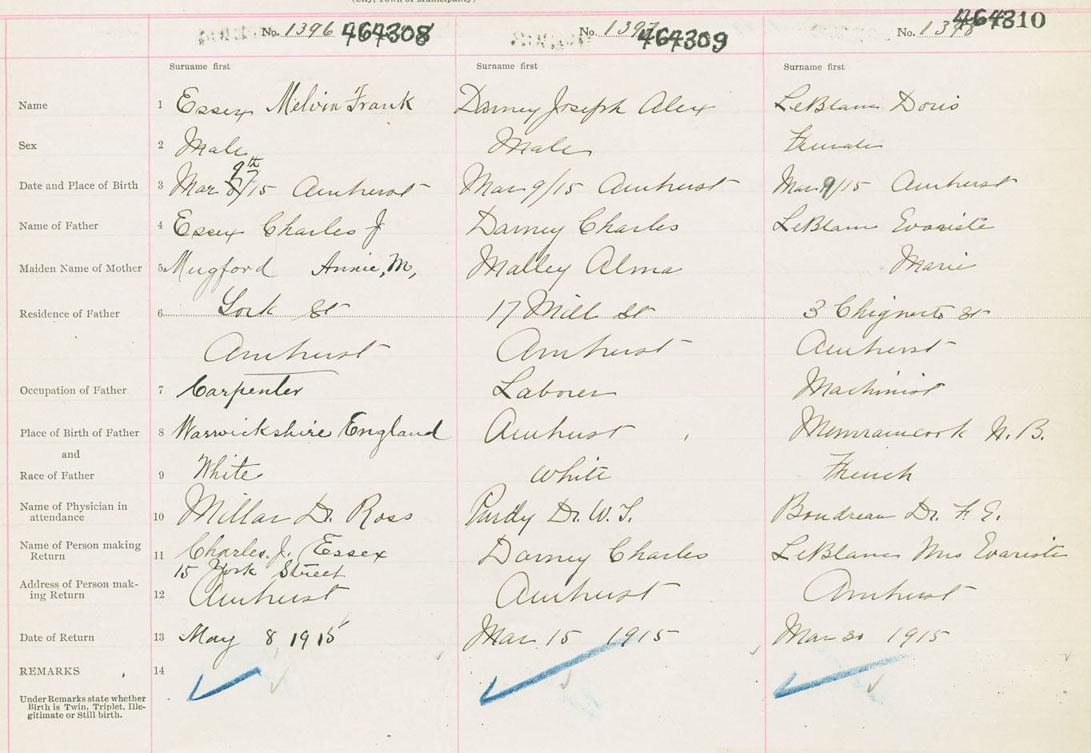 (City, Town or Municipality)
No. 1396 464308 No. 1397 464309 No. 1398 464310
Surname first Surname first Surname first
Name 1 Essex Melvin Frank Darney Joseph Alex LeBlanc Doris
Sex 2 Male Male Female
Date and Place of Birth 3 Mar 9th /15 Amherst Mar 9/15 Amherst Mar 9/15 Amherst
Name of Father 4 Essex Charles J Darney Charles LeBlanc Evariste
Maiden Name of Mother 5 Mugford Annie, M, Malley Alma Marie
Residence of Father 6 York St 17 Mill St 3 Chignecto St
Amherst Amherst Amherst
Occupation of Father 7 Carpenter Laborer Machinist
Place of Birth of Father 8 Warwickshire England Amherst Memramcook N.B.
and
Race of Father 9 White White French
Name of Physician in
attendance 10 Millar Dr. Ross Purdy Dr. W. T. Boudreau Dr. F. E.
Name of Person making
Return 11 Charles. J. Essex Darney Charles LeBlanc Mrs Evariste
15 York Street
Address of Person mak-
ing Return 12 Amherst Amherst Amherst
Date of Return 13 May 8, 1915 Mar 15 1915 Mar 30 1915
REMARKS 14
Under Remarks state whether
Birth is Twin, Triplet, Ille-
gitimate or Still birth.